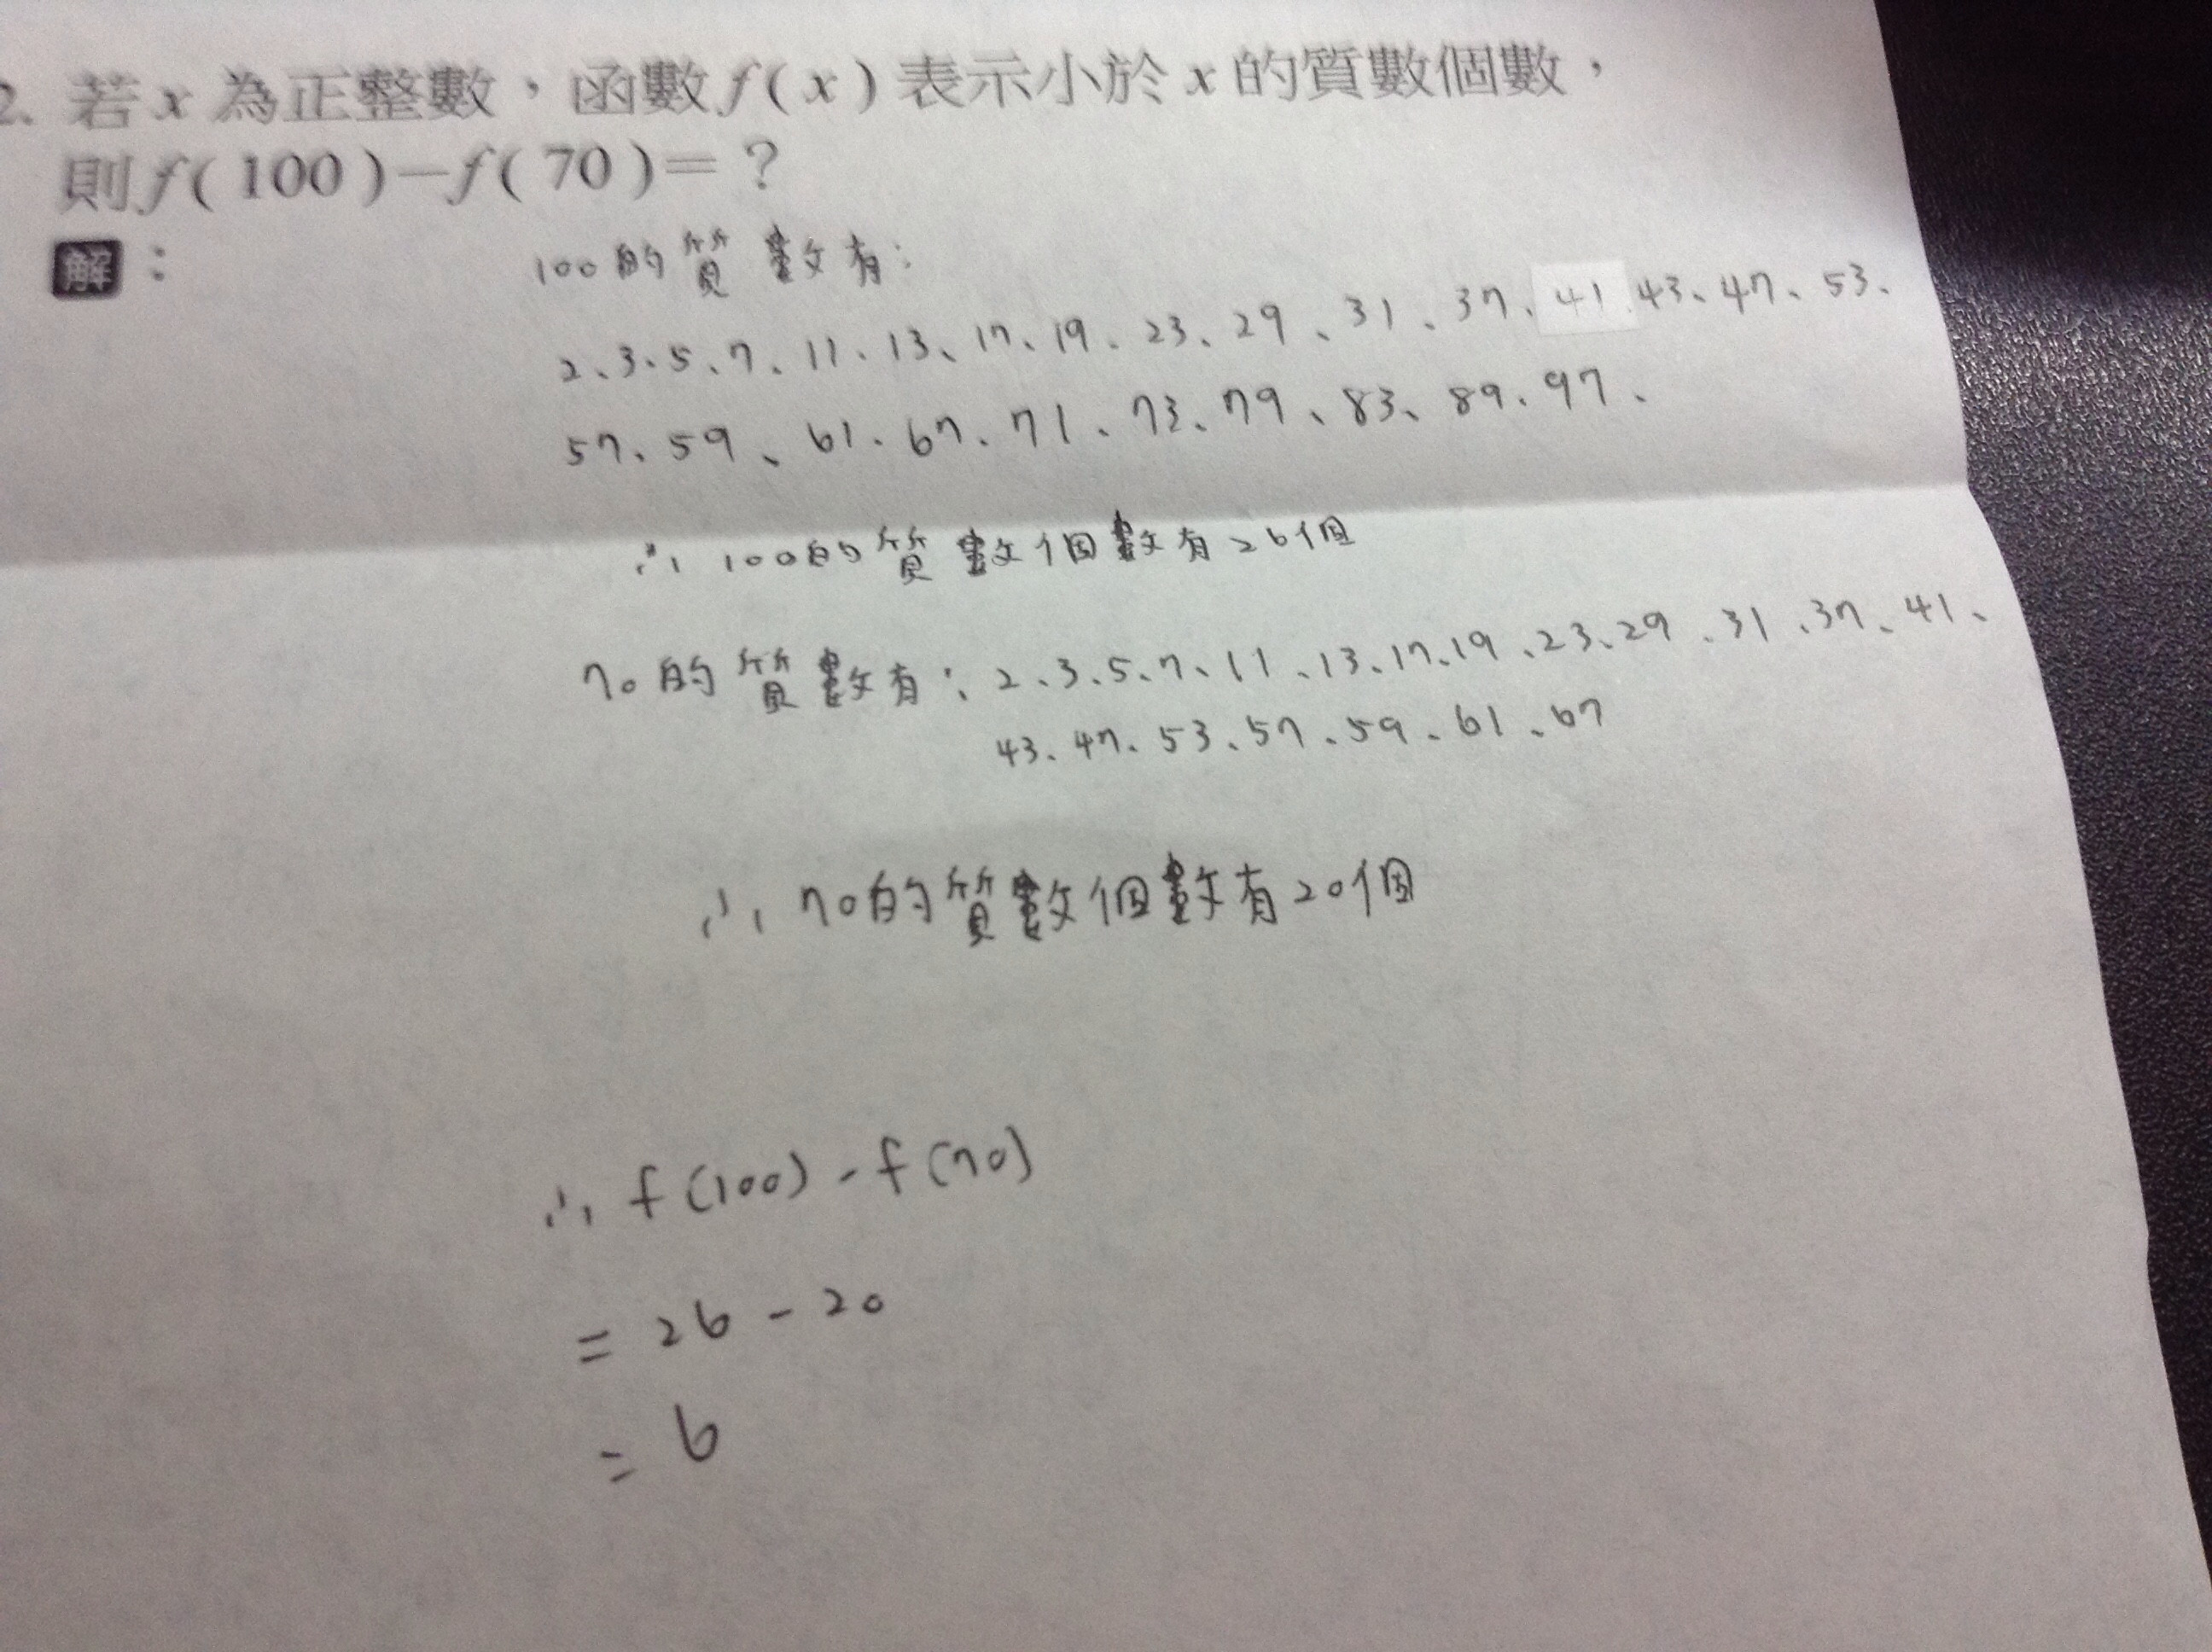 2. 若x為正整數，函數f(x)表示小於x的質數個數，
則f(100)－f(70)=？
解：
100的質數有：
2、3、5、7、11、13、17、19、23、29、31、37、41、43、47、53、
57、59、61、67、71、73、79、83、89、97、
∴ 100的質數個數有26個
70的質數有：2、3、5、7、11、13、17、19、23、29、31、37、41、
43、47、53、57、59、61、67
∴ 70的質數個數有20個
∴ f(100) - f(70)
= 26 - 20
= 6